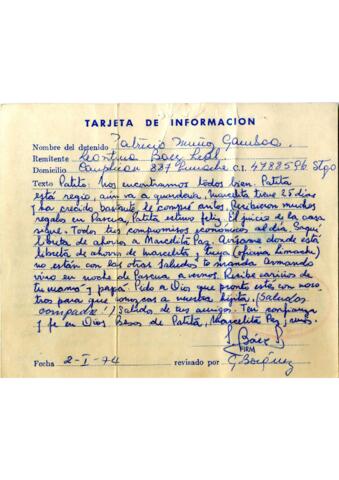 TARJETA DE INFORMACION
Nombre del detenido Patricio Muñoz Gamboa.
Remitente Leontina Baez Leal
Domicilio 837 Limache C.I. 4788596 Stgo
Texto Patito: Nos encontramos todos bien. Patita
está regio, aún va a guardería, Marcelita tiene 25 días
y ha crecido bastante, le compré aritos. Recibieron muchos
regalos en Pascua, Patita estuvo feliz. El juicio de la casa
sigue. Todos tus compromisos económicos al día. Saqué
libreta de ahorro a Marcelita Paz. Avísame donde está
libreta de ahorro de marcelita y tuya (oficina Limache)
no están con las otras. Saludos te manda Armando
vino en noche de Pascua a vernos. Recibe cariños de
tu mamá y papá. Pido a Dios que pronto estés con noso
tros para que conozcas a nuestra hijita. (Saludos
compadre!) Saludos de tus amigos. Ten confianza
y fe en Dios. Besos de Patita, Marcelita Paz,
Baez
FIRM
Fecha 2-I-74 revisado por